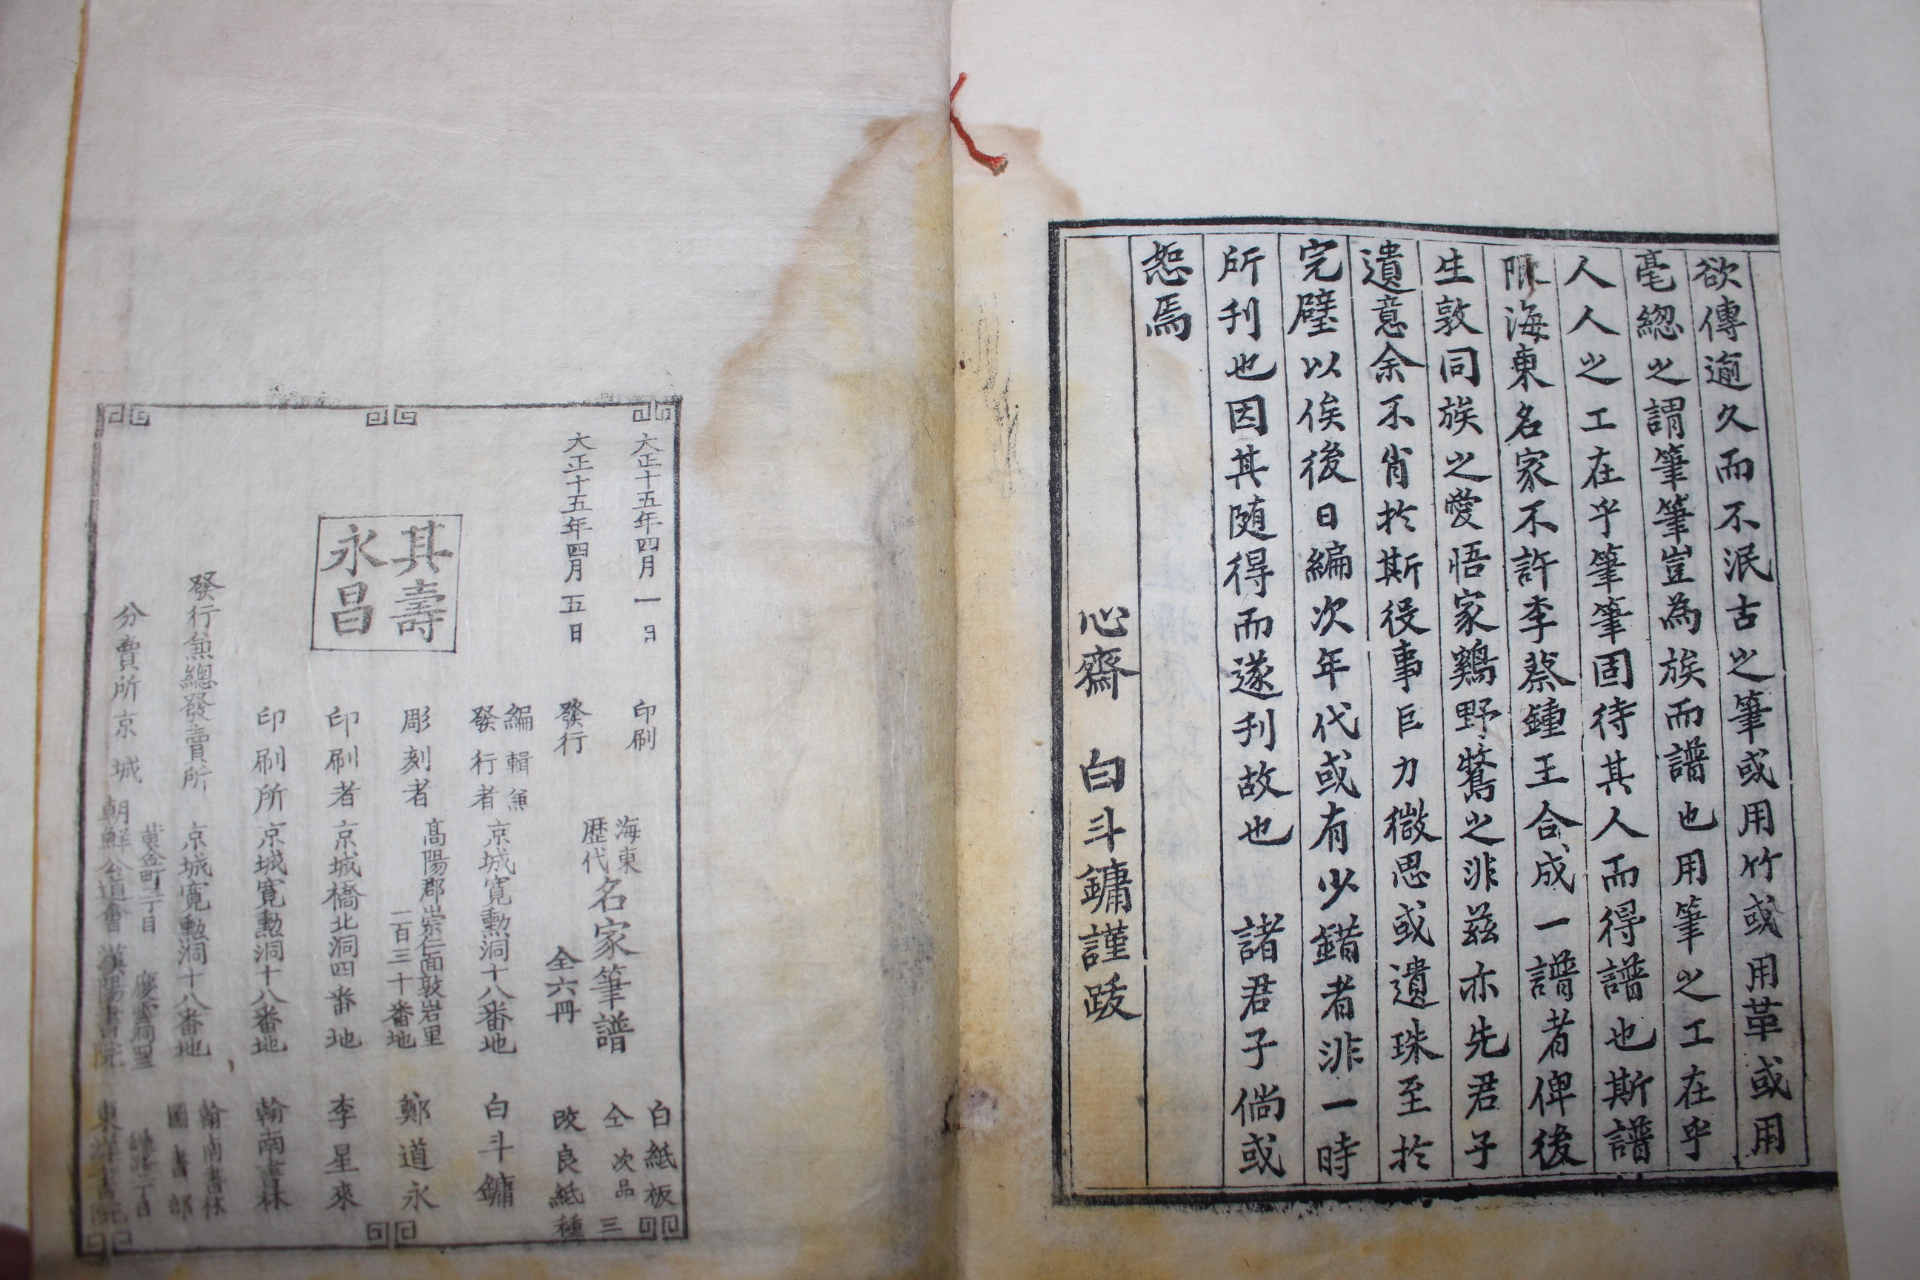 欲傳逾久而不泯古之筆或用竹或用革或用
毫總之謂筆筆豈為族而譜也用筆之工在乎
人人之工在乎筆筆固待其人而得譜也斯譜
海東名家不許李蔡鍾王合成一譜者俾後
生敦同族之愛悟家鷄野鶩之非茲亦先君子
遺意余不肖於斯役事巨力微思或遺珠至於
完璧以俟後日編次年代或有少錯者非一時
所刊也因其隨得而遂刊故也 諸君子倘或
恕焉
心齋 白斗鏞謹跋
大正十五年四月一日 印刷
大正十五年四月五日 發行
海東歷代名家筆譜 全六冊
白紙板
仝次品 三
改良紙種
其壽永昌
編輯兼發行者 京城寬勳洞十八番地 白斗鏞
彫刻者 高陽郡崇仁面敦岩里一百三十番地 鄭道永
印刷者 京城橋北洞四番地 李星來
印刷所 京城寬勳洞十八番地 翰南書林
發行兼總發賣所 京城寬勳洞十八番地 翰南書林圖書部
分賣所京城 黃金町二丁目 朝鮮公道會 漢陽書院 東洋書院